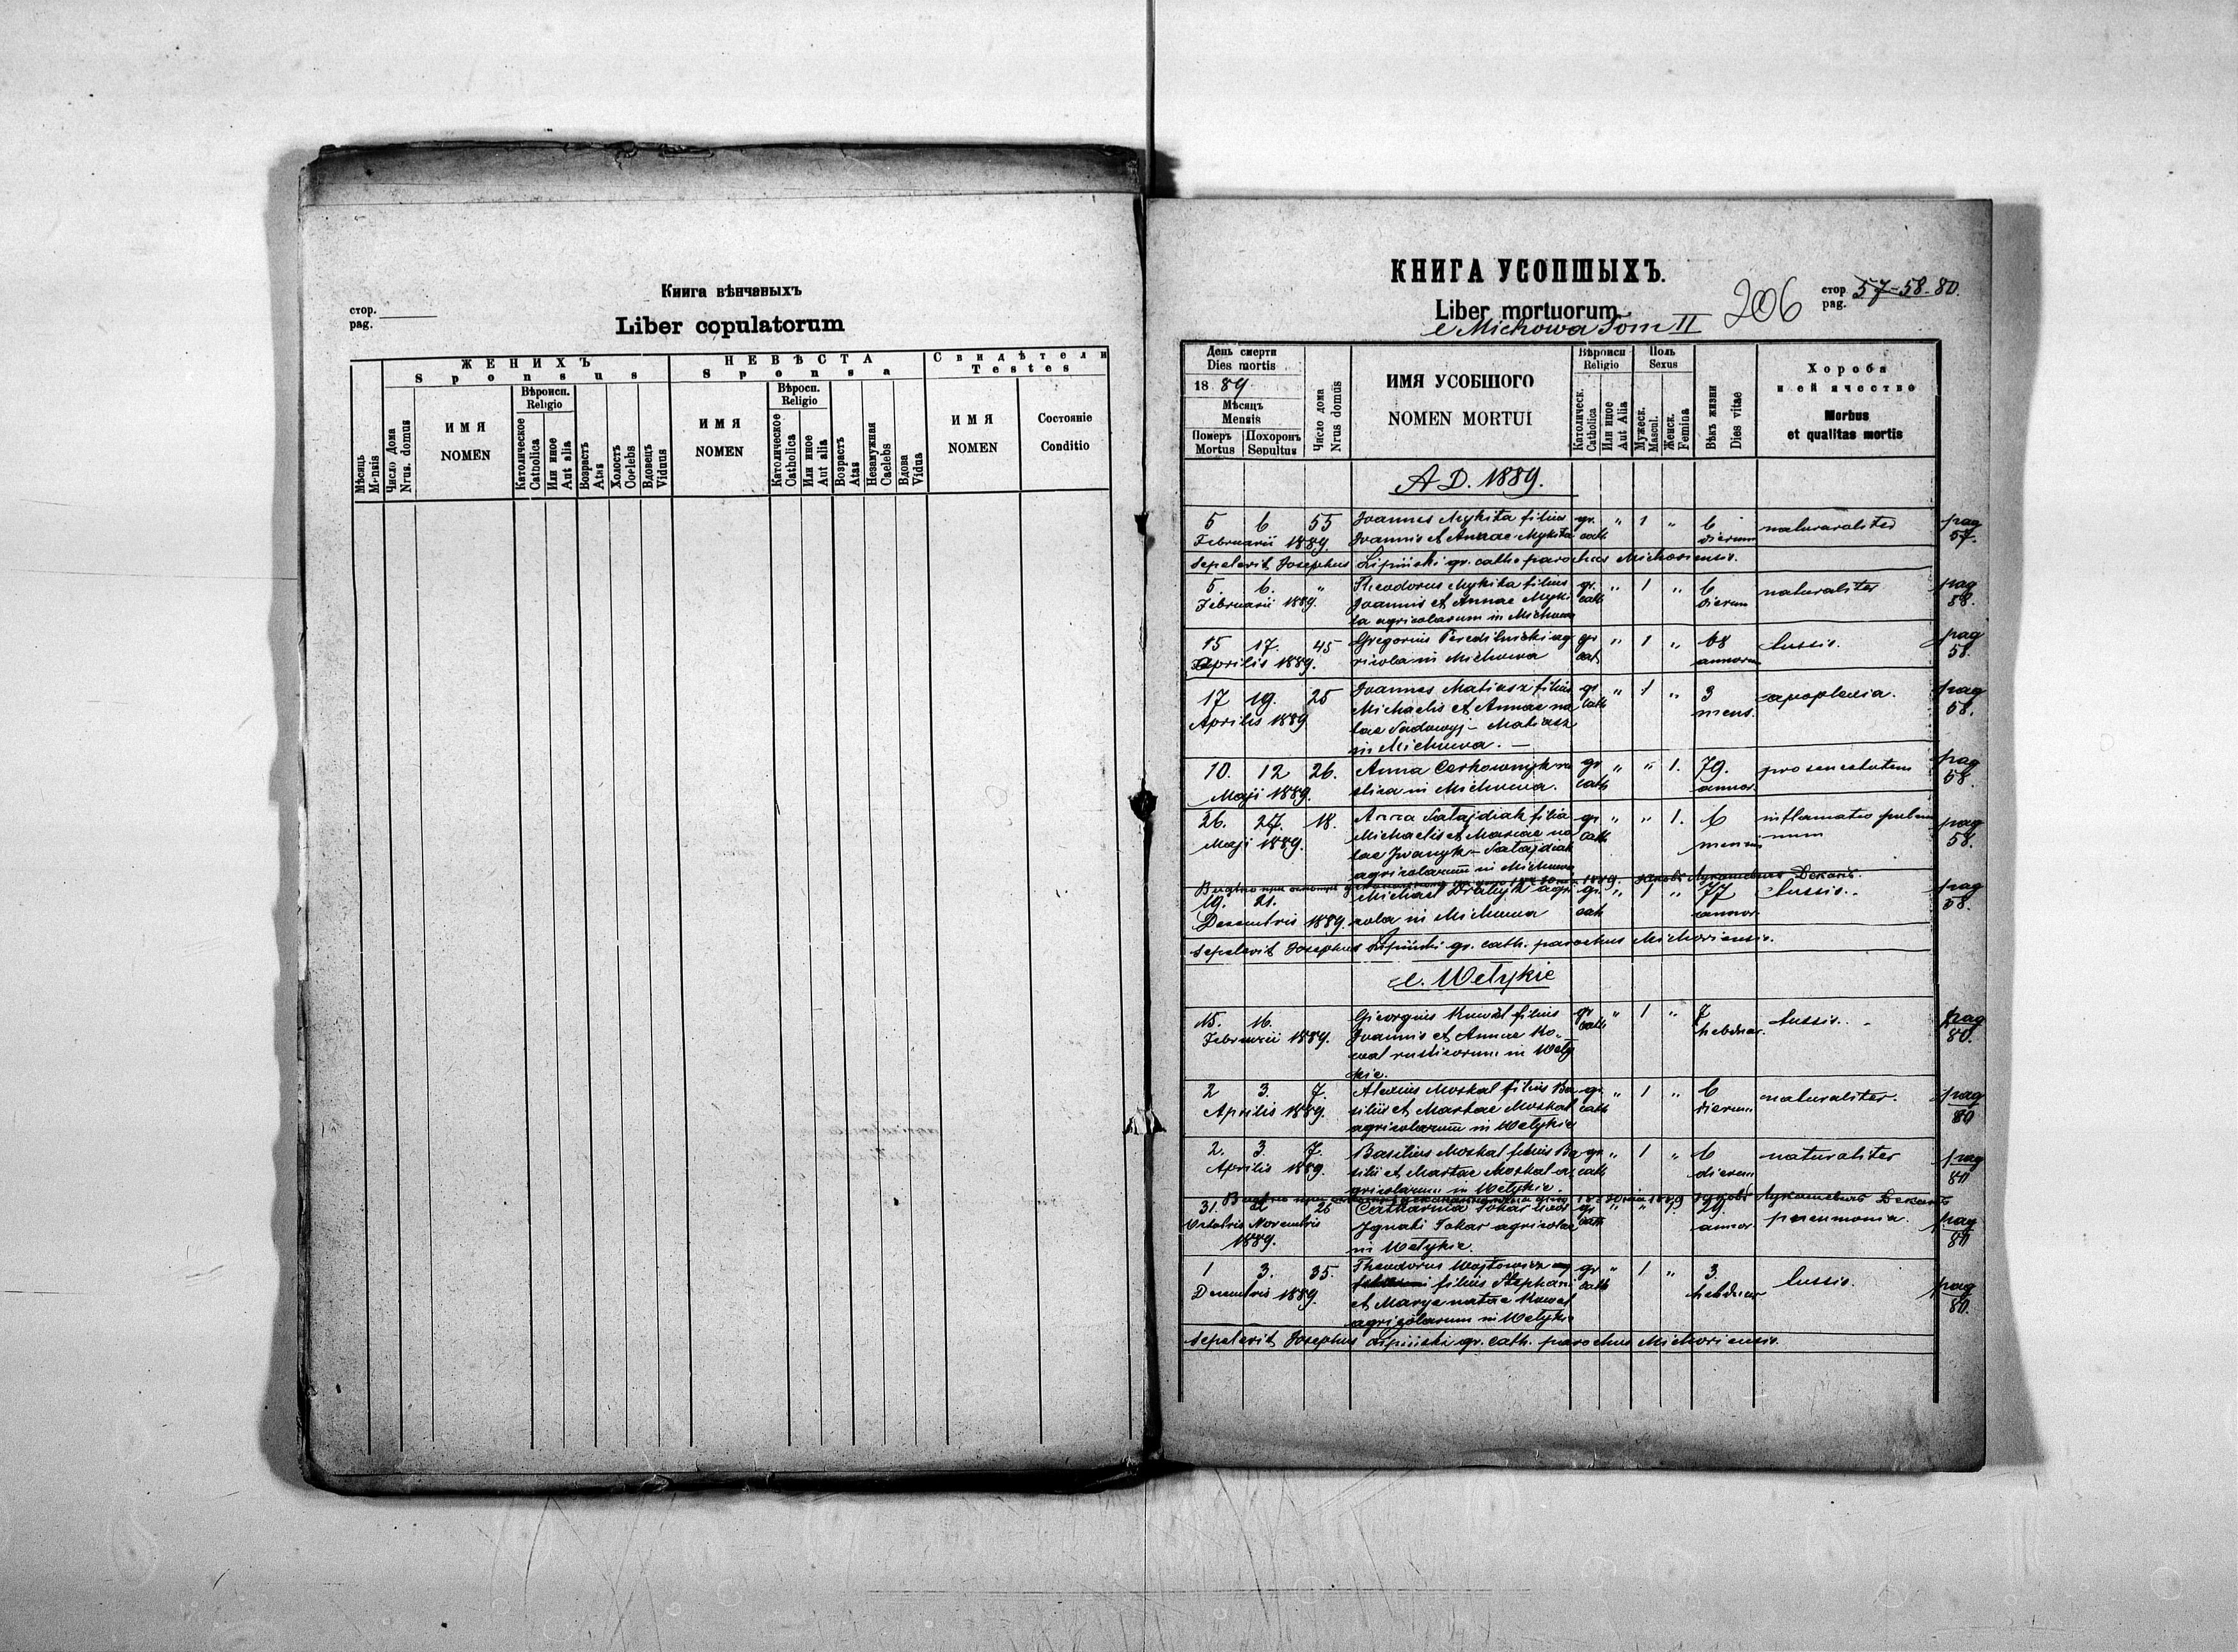 Книга вѣнчаныхъ
стор.
pag.
Liber copulatorum
ЖЕНИХЪ
Sponsus
НЕВѢСТА
Sponsa
Свидѣтели
Testes
Мѣсяць
Mensis
Число Дома
Nrus. domus
ИМЯ
NOMEN
Вѣроисп.
Religio
Католическое
Catholica
Или иное
Aut alia
Возрастъ
Atas
Холостъ
Coelebs
Вдовецъ
Viduus
ИМЯ
NOMEN
Вѣросп.
Religio
Католическое
Catholica
Или иное
Aut alia
Возрастъ
Atas
Незамужная
Caelebs
Вдова
Vidua
ИМЯ
NOMEN
Состояніе
Conditio
КНИГА УСОПШЫХЪ.
Liber mortuorum
e Michowa Tom II
206
стор
pag. 57-58-80.
День смерти
Dies mortis
1889
Мѣсяцъ
Mensis
Померъ
Mortus
Похоронъ
Sepultus
Число дома
Nrus domus
ИМЯ УСОБШОГО
NOMEN MORTUI
Вѣроисп
Religio
Католическ.
Catholica
Или иное
Aut Alia
Поль
Sexus
Мужеск.
Mascul.
Женск.
Femina
Вѣкъ жизни
Dies vitae
Хороба
и ей ячество
Morbus
et qualitas mortis
A D. 1889.
5 6 55 Joannes Mykita filius gr. " 1 " 6 pag
Februarii 1889. Joannis et Annae Mykita cath dierum 57.
Sepelevit Josephus Lipiński gr. cath. parochus Michoviensis.
5. 6. " Theodorus Mykita filius gr. " 1 " 6 naturaliter pag
Februarii 1889. Joannis et Annae Myki cath dierum 58.
ta agricolarum in Michowa
15 17. 45 Gregorius ag gr " 1 " 68 tussis. pag
Aprilis 1889. ricola in Michowa cat. annorum 58.
17 19. 25 Joannes Matiasz filius gr " 1 " 3 apoplexia. pag
Aprilis 1889 Michaelis et Annae na cath mens. 58.
tae Sadowyj - Matiasz
in Michowa. -
10. 12 26. Anna ru gr " " 1. 79. pag
Maji 1889. stica in Michowa. cath annor. 58.
26. 27. 18. Anna filia gr " " 1. 6 inflamatio pulmo pag
Maji 1889. Michaelis et Mariae na cath mensium num 58.
tae Iwanyk -
agricolarum in Michowa
19. 21. Michael agri gr. " 1 " 77 tussis. pag
Decembris 1889. cola in Michowa cath annor 58.
Sepelevit Josephus Lipiński gr. cath. parochus Michoviensis.
e. Wetykie
15. 16. Georgius Kowal filius gr " 1 " 7 tussis. pag
Februarii 1889. Joannis et Annae Ko- cath hebdmar. 80.
wal rusticorum in Wety
kie.
2 3. 7. Alexius Moskal filius Ba gr. " 1 " 6 naturaliter. pag
Aprilis 1889. silii et Martae Moskal cath dierum 80
agricolarum in Wetykie
2. 3. 7. Basilius Moskal filius Ba gr " 1 " 6 naturaliter pag
Aprilis 1889. silii et Martae Moskal a cath dierum 80
gricolarum in Wetykie.
31. 2 26 Catharina Tokar uxor gr " " 29. pneumonia. pag
Octobris Novembris Ignati Tokar agricolae cath annor 80
1889. in Wetykie.
1 3. 35. Theodorus Wojtowicz gr " 1 " 3. tussis. pag
Decembris 1889. filius Stephani cath hebdmar 80.
et Marye natae Kowal
agricolarum in Wetykie
Sepelevit Josephus Lipiński gr. cath. parochus Michoviensis.